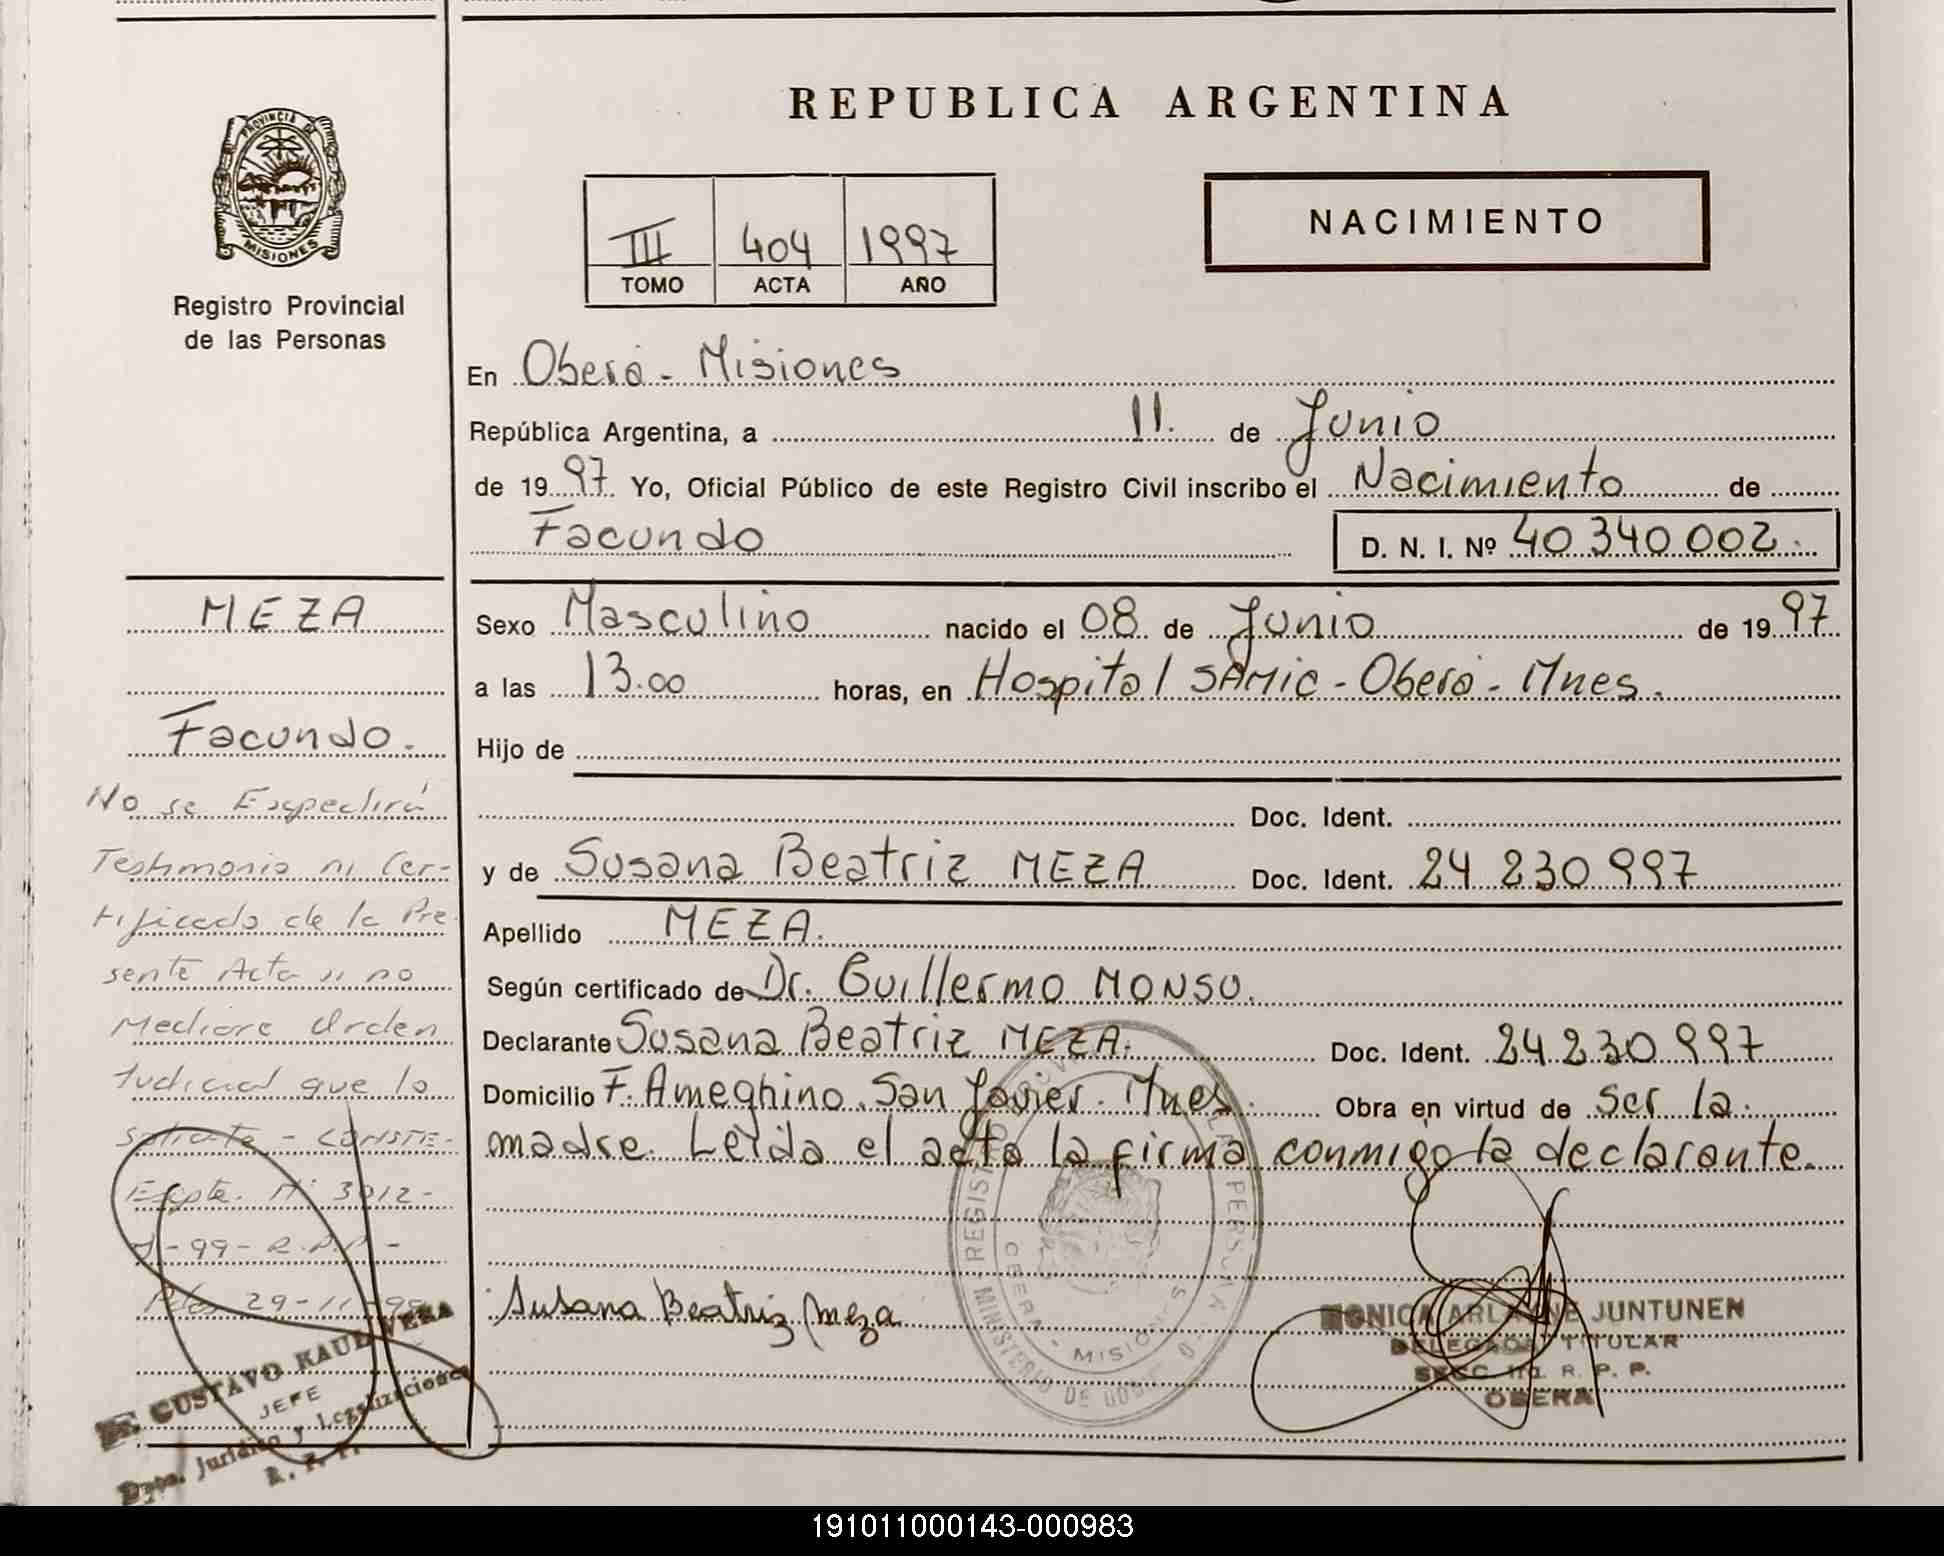 REPUBLICA ARGENTINA
PROVINCIA DE
MISIONES
Registro Provincial
de las Personas
III 404 1997
TOMO ACTA AÑO
NACIMIENTO
En Oberá - Misiones
República Argentina, a 11. de Junio
de 1997. Yo, Oficial Público de este Registro Civil inscribo el Nacimiento de
Facundo D. N. I. Nº 40 340 002.
Sexo Masculino nacido el 08 de Junio de 1997
a las 13.00 horas, en Hospital SAMIC - Oberá - Mnes.
Hijo de
Doc. Ident.
y de Susana Beatriz MEZA Doc. Ident. 24 230 997
Apellido MEZA.
Según certificado de Dr. Guillermo MONSO.
Declarante Susana Beatriz MEZA. Doc. Ident. 24 230 997
Domicilio F. Ameghino. San Javier. Mnes. Obra en virtud de ser la
madre. Leída el acta la firma conmigo la declarante.
Susana Beatriz Meza
MONICA ARLAYNE JUNTUNEN
DELEGADA TITULAR
R. P. P.
OBERA
MEZA
Facundo.
No se Expedirá
Testimonio ni Cer-
tificado de la Pre
sente Acta si no
Mediare Orden
Judicial que lo
solicite - CONSTE-
Expte. Nº 3012-
-99- R.P.P. -
Pdas 29-11-99
GUSTAVO
JEFE
Dpto. Jurídico y Legalizaciones
R. P. P.
191011000143-000983